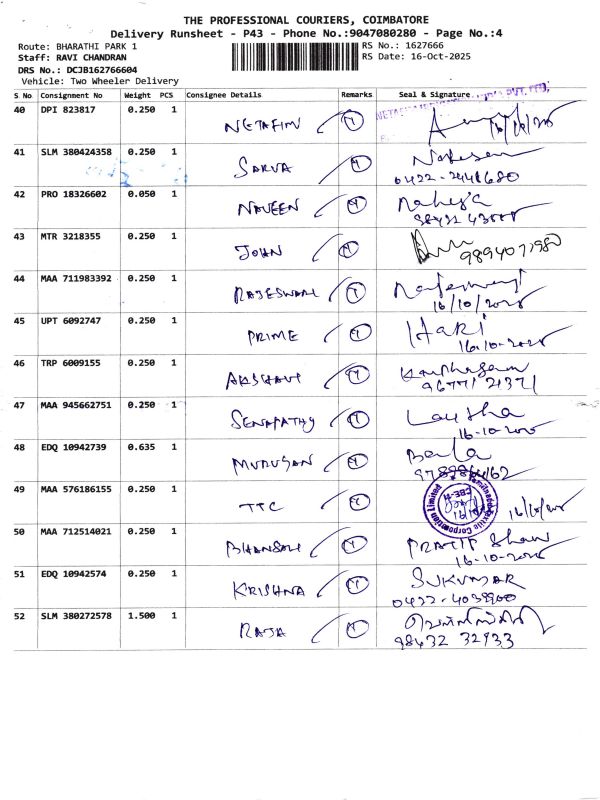 THE PROFESSIONAL COURIERS, COIMBATORE
Delivery Runsheet - P43 - Phone No.:9047080280 - Page No.:4
Route: BHARATHI PARK 1
RS No.: 1627666
Staff: RAVI CHANDRAN
RS Date: 16-Oct-2025
DRS No.: DCJB162766604
Vehicle: Two Wheeler Delivery
S No Consignment No Weight PCS Consignee Details Remarks Seal & Signature
40 DPI 823817 0.250 1 NETAFIM
41 SLM 380424358 0.250 1 SARVA
0422-2441680
42 PRO 18326602 0.050 1 NAVEEN
43 MTR 3218355 0.250 1 JOHN
44 MAA 711983392 0.250 1 RAJESWARI
16/10/2025
45 UPT 6092747 0.250 1 PRIME HARI
16-10-2025
46 TRP 6009155 0.250 1
96771 21371
47 MAA 945662751 0.250 1 SENAPATHY
16-10-2025
48 EDQ 10942739 0.635 1 MURUGAN Bala
49 MAA 576186155 0.250 1 TTC
50 MAA 712514021 0.250 1 BHANSALI PRATIP Shaw
16-10-2025
51 EDQ 10942574 0.250 1 KRISHNA SUKUMAR
52 SLM 380272578 1.500 1 RAJA
98432 32933